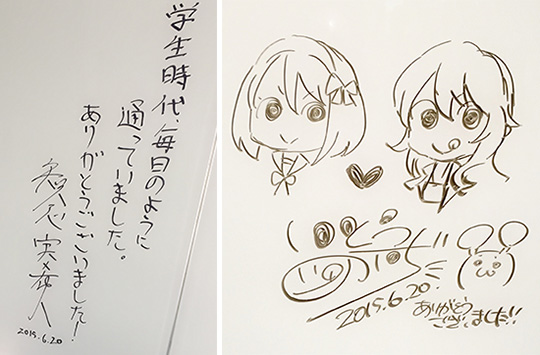 学生時代、毎日のように
通っていました。
ありがとうございました!
2015.6.20
2015.6.20.
ありがとう
ございました!!